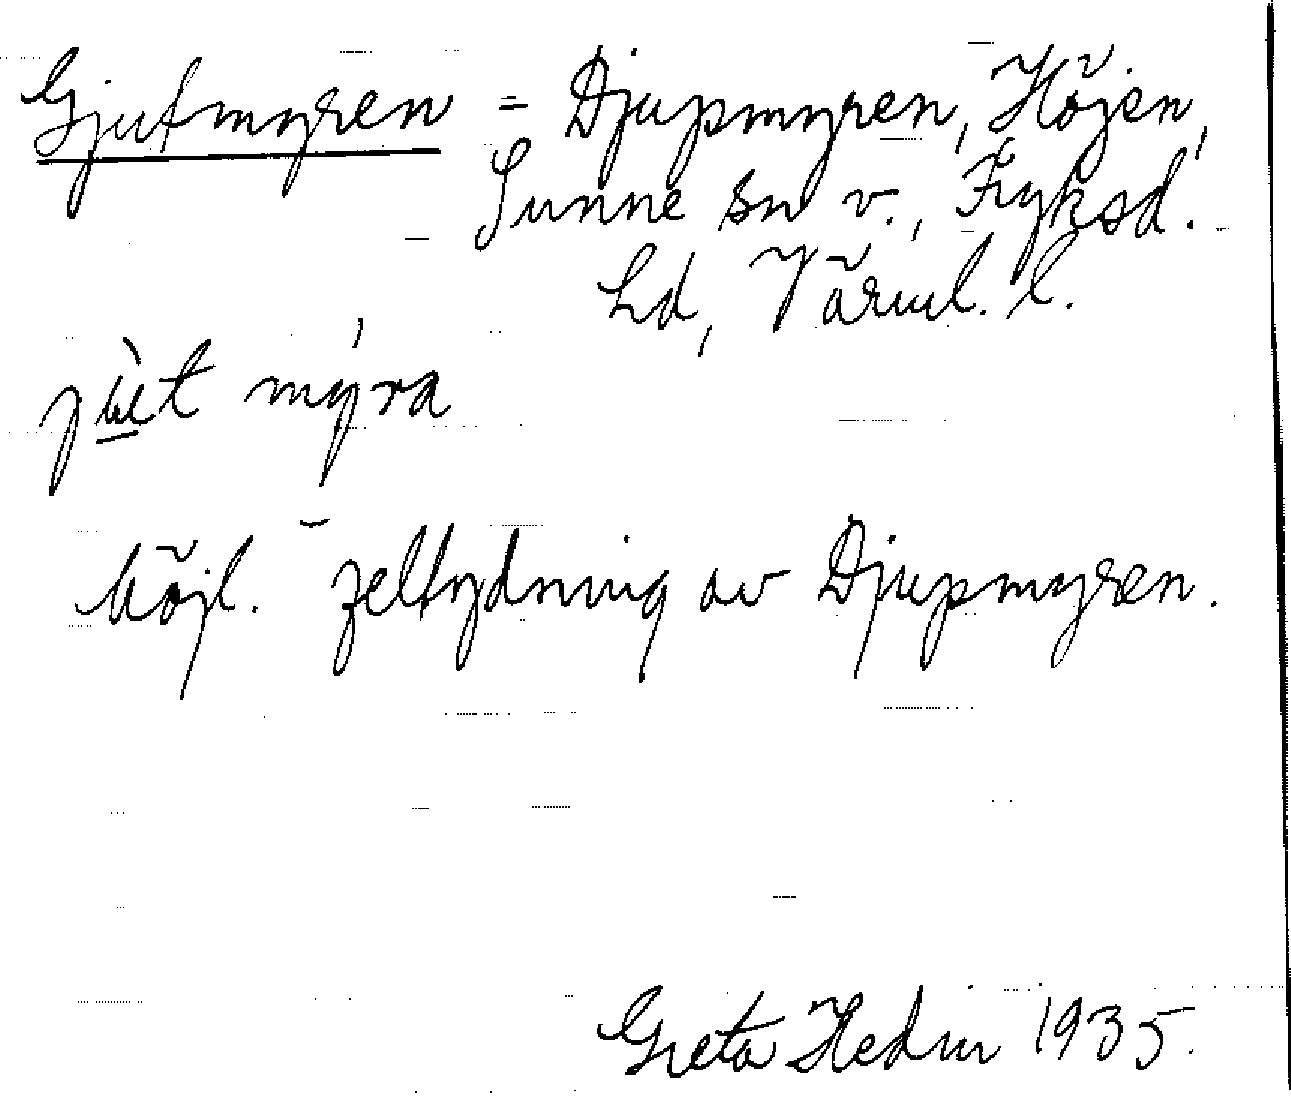 Gjutmyren = Djupmyren, Höjen,
Sunne sn v., Fryksd.
hd, Värml. l.
mýra
Möjl. feltydning av Djupmyren.
Greta Hedin 1935.